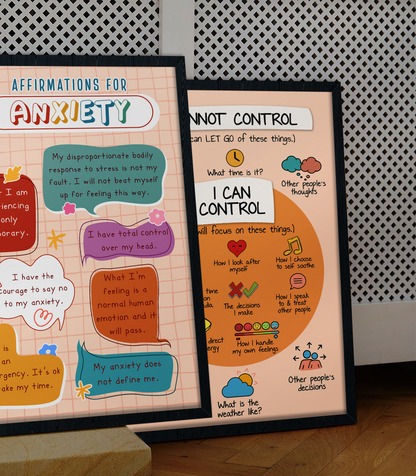 AFFIRMATIONS FOR
ANXIETY
My disproportionate bodily
response to stress is not my
fault. I will not beat myself
up for feeling this way.
I am
only
I have total control
over my head.
I have the
to say no
to my anxiety.
What I'm
feeling is a
normal human
emotion and it
will pass.
is
an
It's ok
my time.
My anxiety does
not define me.
CONTROL
can LET GO of these things.)
What time is it?
Other people's
thoughts
I CAN
CONTROL
will focus on these things.)
How I look after
myself
How I choose
to self soothe
time
on
The decisions
I make
How I speak
to & treat
other people
How I handle
my own feelings
Other people's
decisions
What is the
weather like?